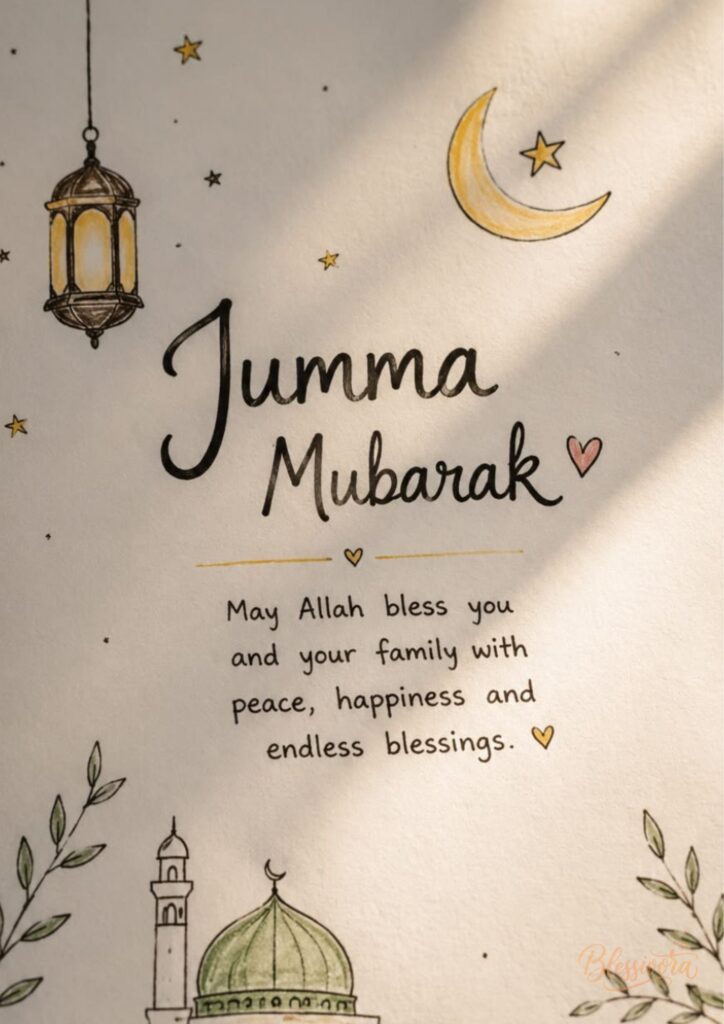 Jumma
Mubarak
May Allah bless you
and your family with
peace, happiness and
endless blessings.
Blessivora